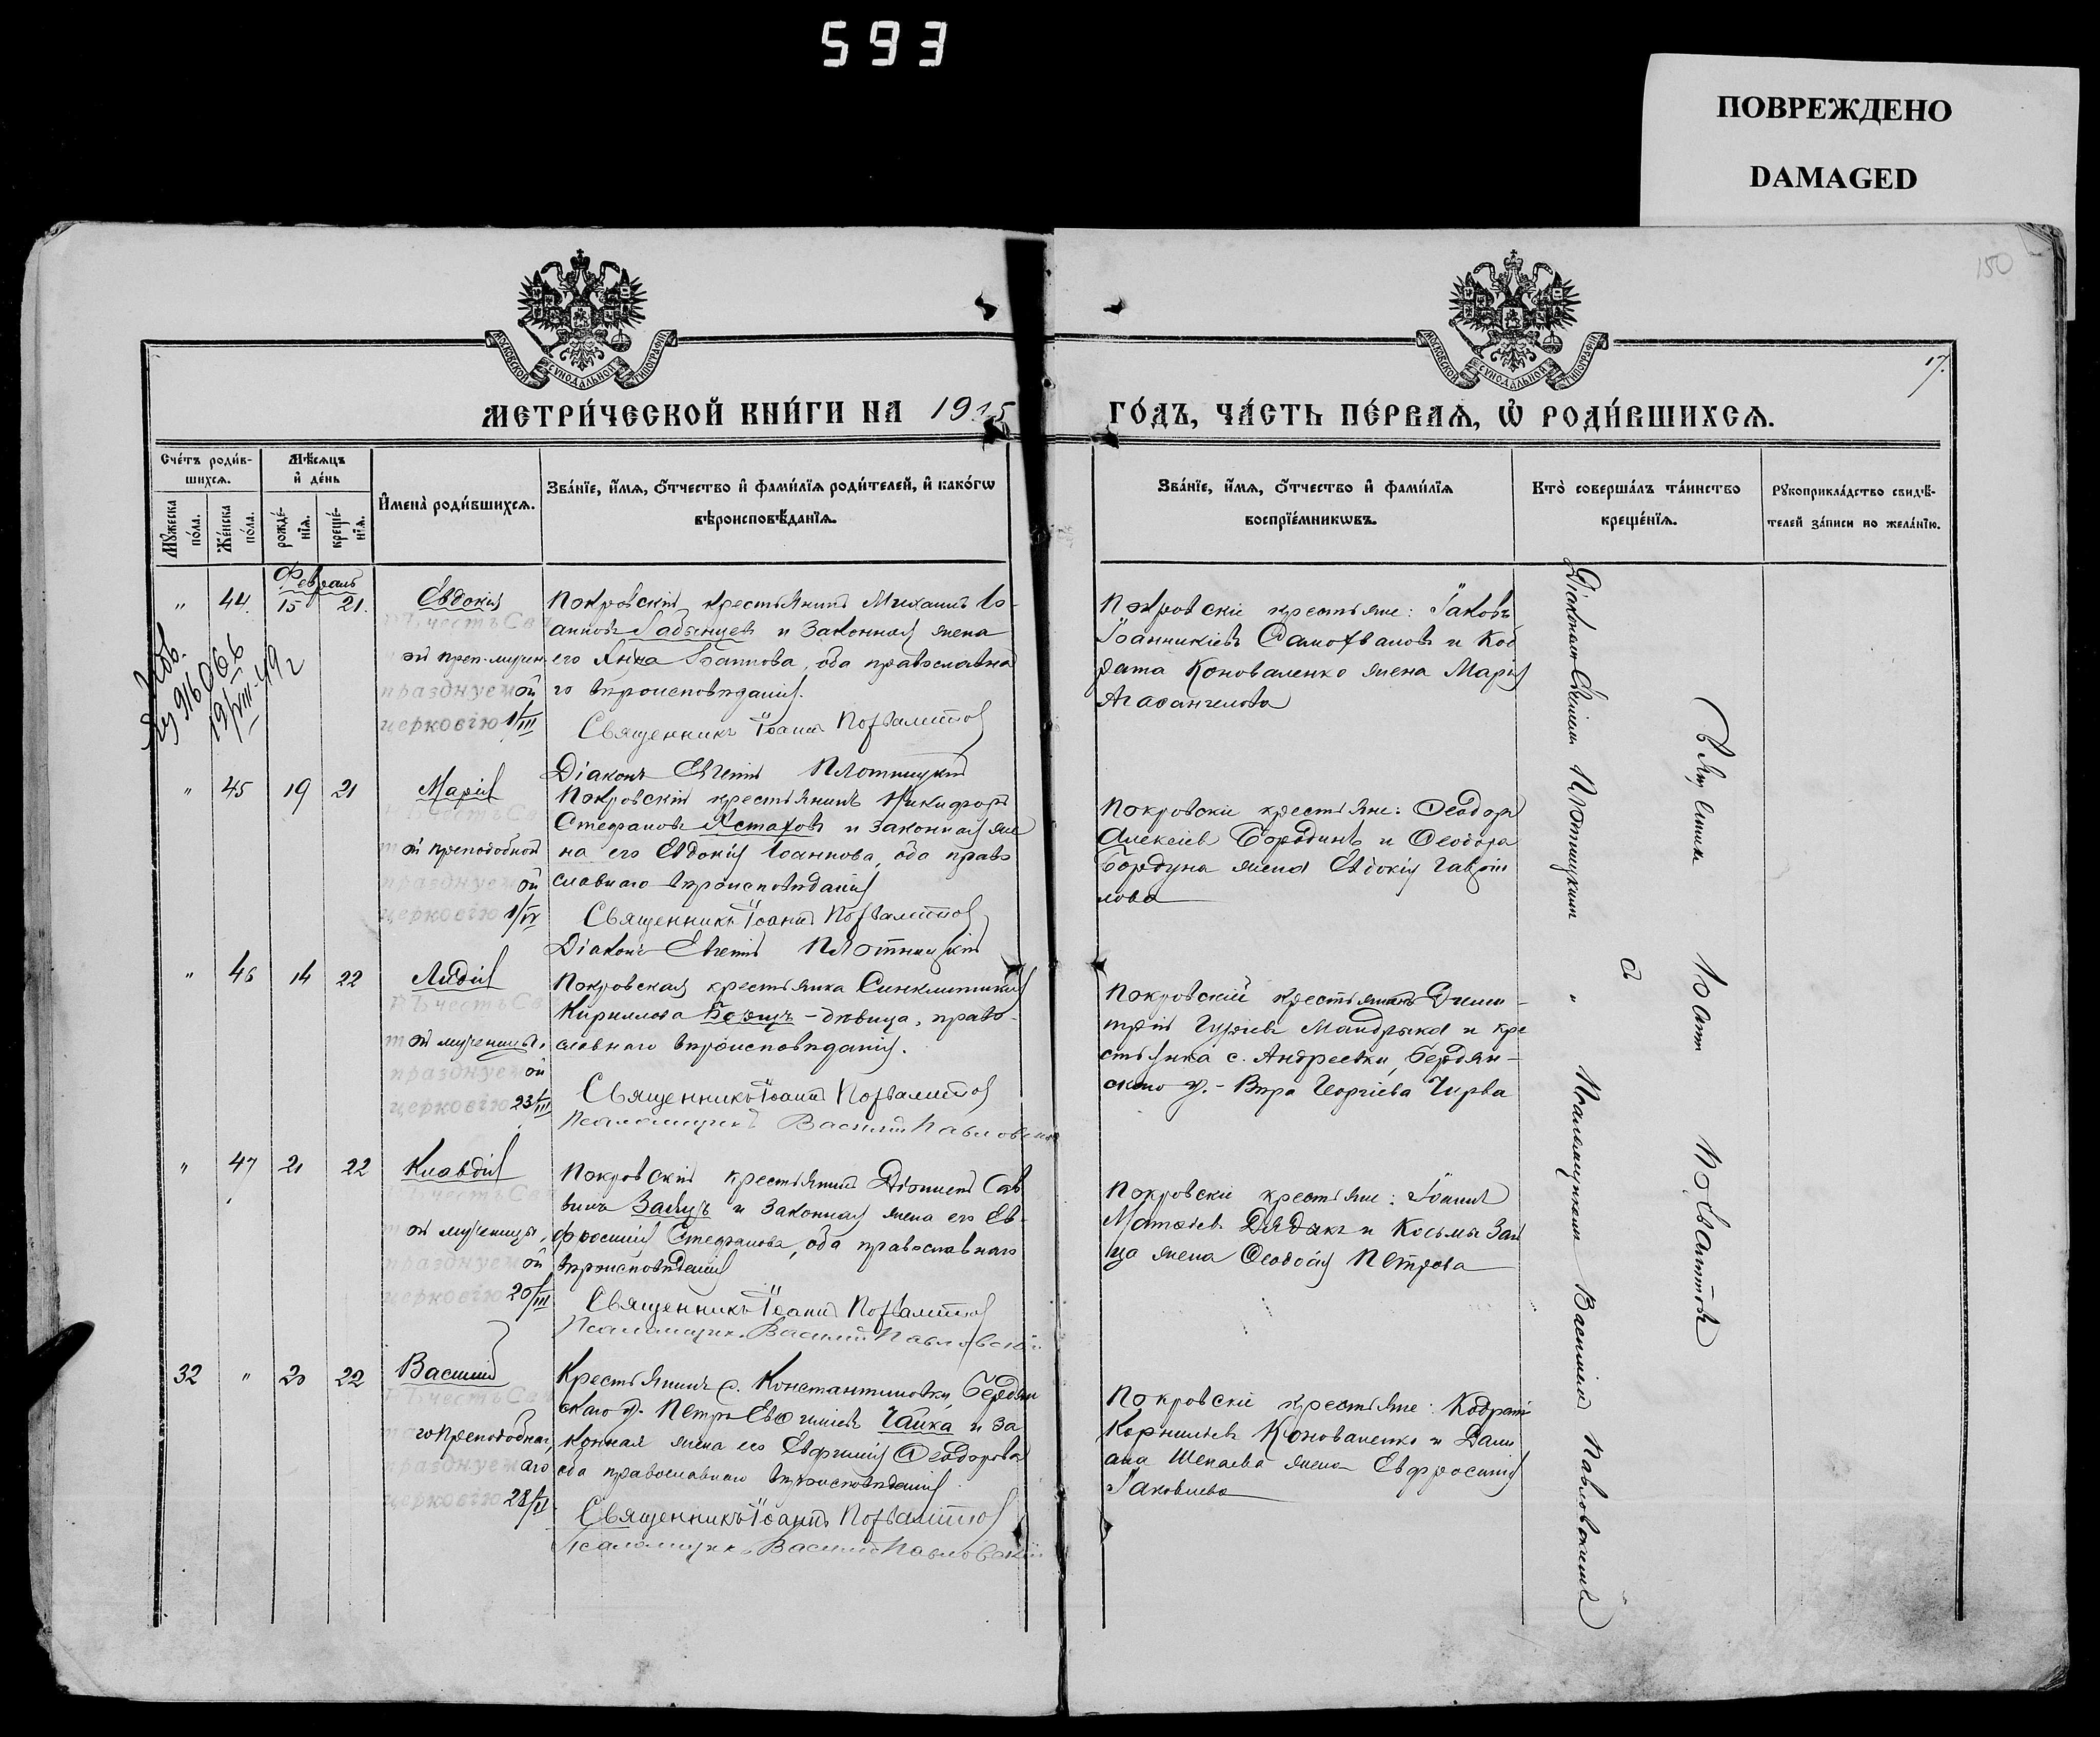 593
ПОВРЕЖДЕНО
DAMAGED
150
17.
МОСКОВСКОЙ СУНОДАЛЬНОЙ ТИПОГРАФІИ
МОСКОВСКОЙ СУНОДАЛЬНОЙ ТИПОГРАФІИ
МЕТРИ́ЧЕСКОЙ КНИ́ГИ НА 1915
ГО́ДЪ, ЧА́СТЬ ПЕ́РВАѦ, Ѡ҆ РОДИ́ВШИХСѦ.
Сче́тъ роди́в-
шихсѧ.
Мꙋ́жеска по́ла.
Же́нска по́ла.
Мѣ́сѧцъ
и҆ де́нь
рожде́-
нїѧ.
креще́-
нїѧ.
И҆мена̀ роди́вшихсѧ.
Зва́нїе, и҆́мѧ, ѻ҆́тчество и҆ фами́лїѧ роди́телей, и҆ како́гѡ
вѣроисповѣ́данїѧ.
Зва́нїе, и҆́мѧ, ѻ҆́тчество и҆ фами́лїѧ
воспрїе́мникѡвъ.
Кто̀ соверша́лъ та́инство
креще́нїѧ.
Рꙋкоприкла́дство свидѣ́-
телей за́писи по жела́нїю.
Февраль
" 44. 15 21. Евдокія
въ честь Св
ой преп.-мучен.
празднуемой
церковію 1/III
916066
19/VIII-49 г
Покровскій крестьянинъ Михаилъ Іо-
анновъ Габенцев и законная жена
его Анна Іоаннова, оба православна
го вѣроисповѣданія.
Священникъ Іоаннъ
Діаконъ Евгеній Плотницкій
Покровскіе крестьяне: Іаковъ
Іоанникіевъ Самохвалов и Код
рата Коноваленко жена Марія
Агафангелова
" 45 19 21 Марія
въ честь Св
ой преподобной
празднуемой
церковію 1/IV
Покровскій крестьянинъ Никифоръ
Стефановъ Астахов и законная же
на его Евдокія Іоаннова, оба право
славнаго вѣроисповѣданія
Священникъ Іоаннъ
Діаконъ Евгеній Плотницкій
Покровскіе крестьяне: Ѳеодоръ
Алексіев Бородинъ и Ѳеодора
Бордуна жена Евдокія Гаврі
лова
" 46 14 22 Лидія
въ честь Св
ой мученицы,
празднуемой
церковію 23/III
Покровская крестьянка Синклитикія
Кириллова – дѣвица, право-
славнаго вѣроисповѣданія.
Священникъ Іоаннъ
Псаломщикъ Василій Павловскій
Покровскій крестьянинъ Дими-
трій Гуріев Мандрыка и кре
стьянка с. Андреевки, Бердян-
скаго у. – Вѣра Георгіева Чирва
" 47 21 22 Клавдія
въ честь Св
ой мученицы,
празднуемой
церковію 20/III
Покровскій крестьянинъ Діонисій Сав
винъ Заяцъ и законная жена его Ев-
фросинія Стефанова, оба православнаго
вѣроисповѣданія
Священникъ Іоаннъ
Псаломщикъ Василій Павловскій
Покровскіе крестьяне: Іоаннъ
Матѳіев Дядыкъ и Косьмы Зай
ца жена Ѳеодосія Петрова
32 " 20 22 Василій
въ честь Св
го преподобнаго,
празднуемаго
церковію 28/II
Крестьянинъ с. Константиновки, Бердян
скаго у. Петръ Евфиміев Чайка и за
конная жена его Евфимія Ѳеодорова
оба православнаго вѣроисповѣданія
Священникъ Іоаннъ
Псаломщикъ Василій Павловскій
Покровскіе крестьяне: Кодратъ
Корниліев Коноваленко и Дамі
ана Шепаева жена Евфросинія
Іаковлева
Діаконом Евгеніем Плотницкимъ " Псаломщикомъ Василіемъ Павловскимъ
съ
Іоанн